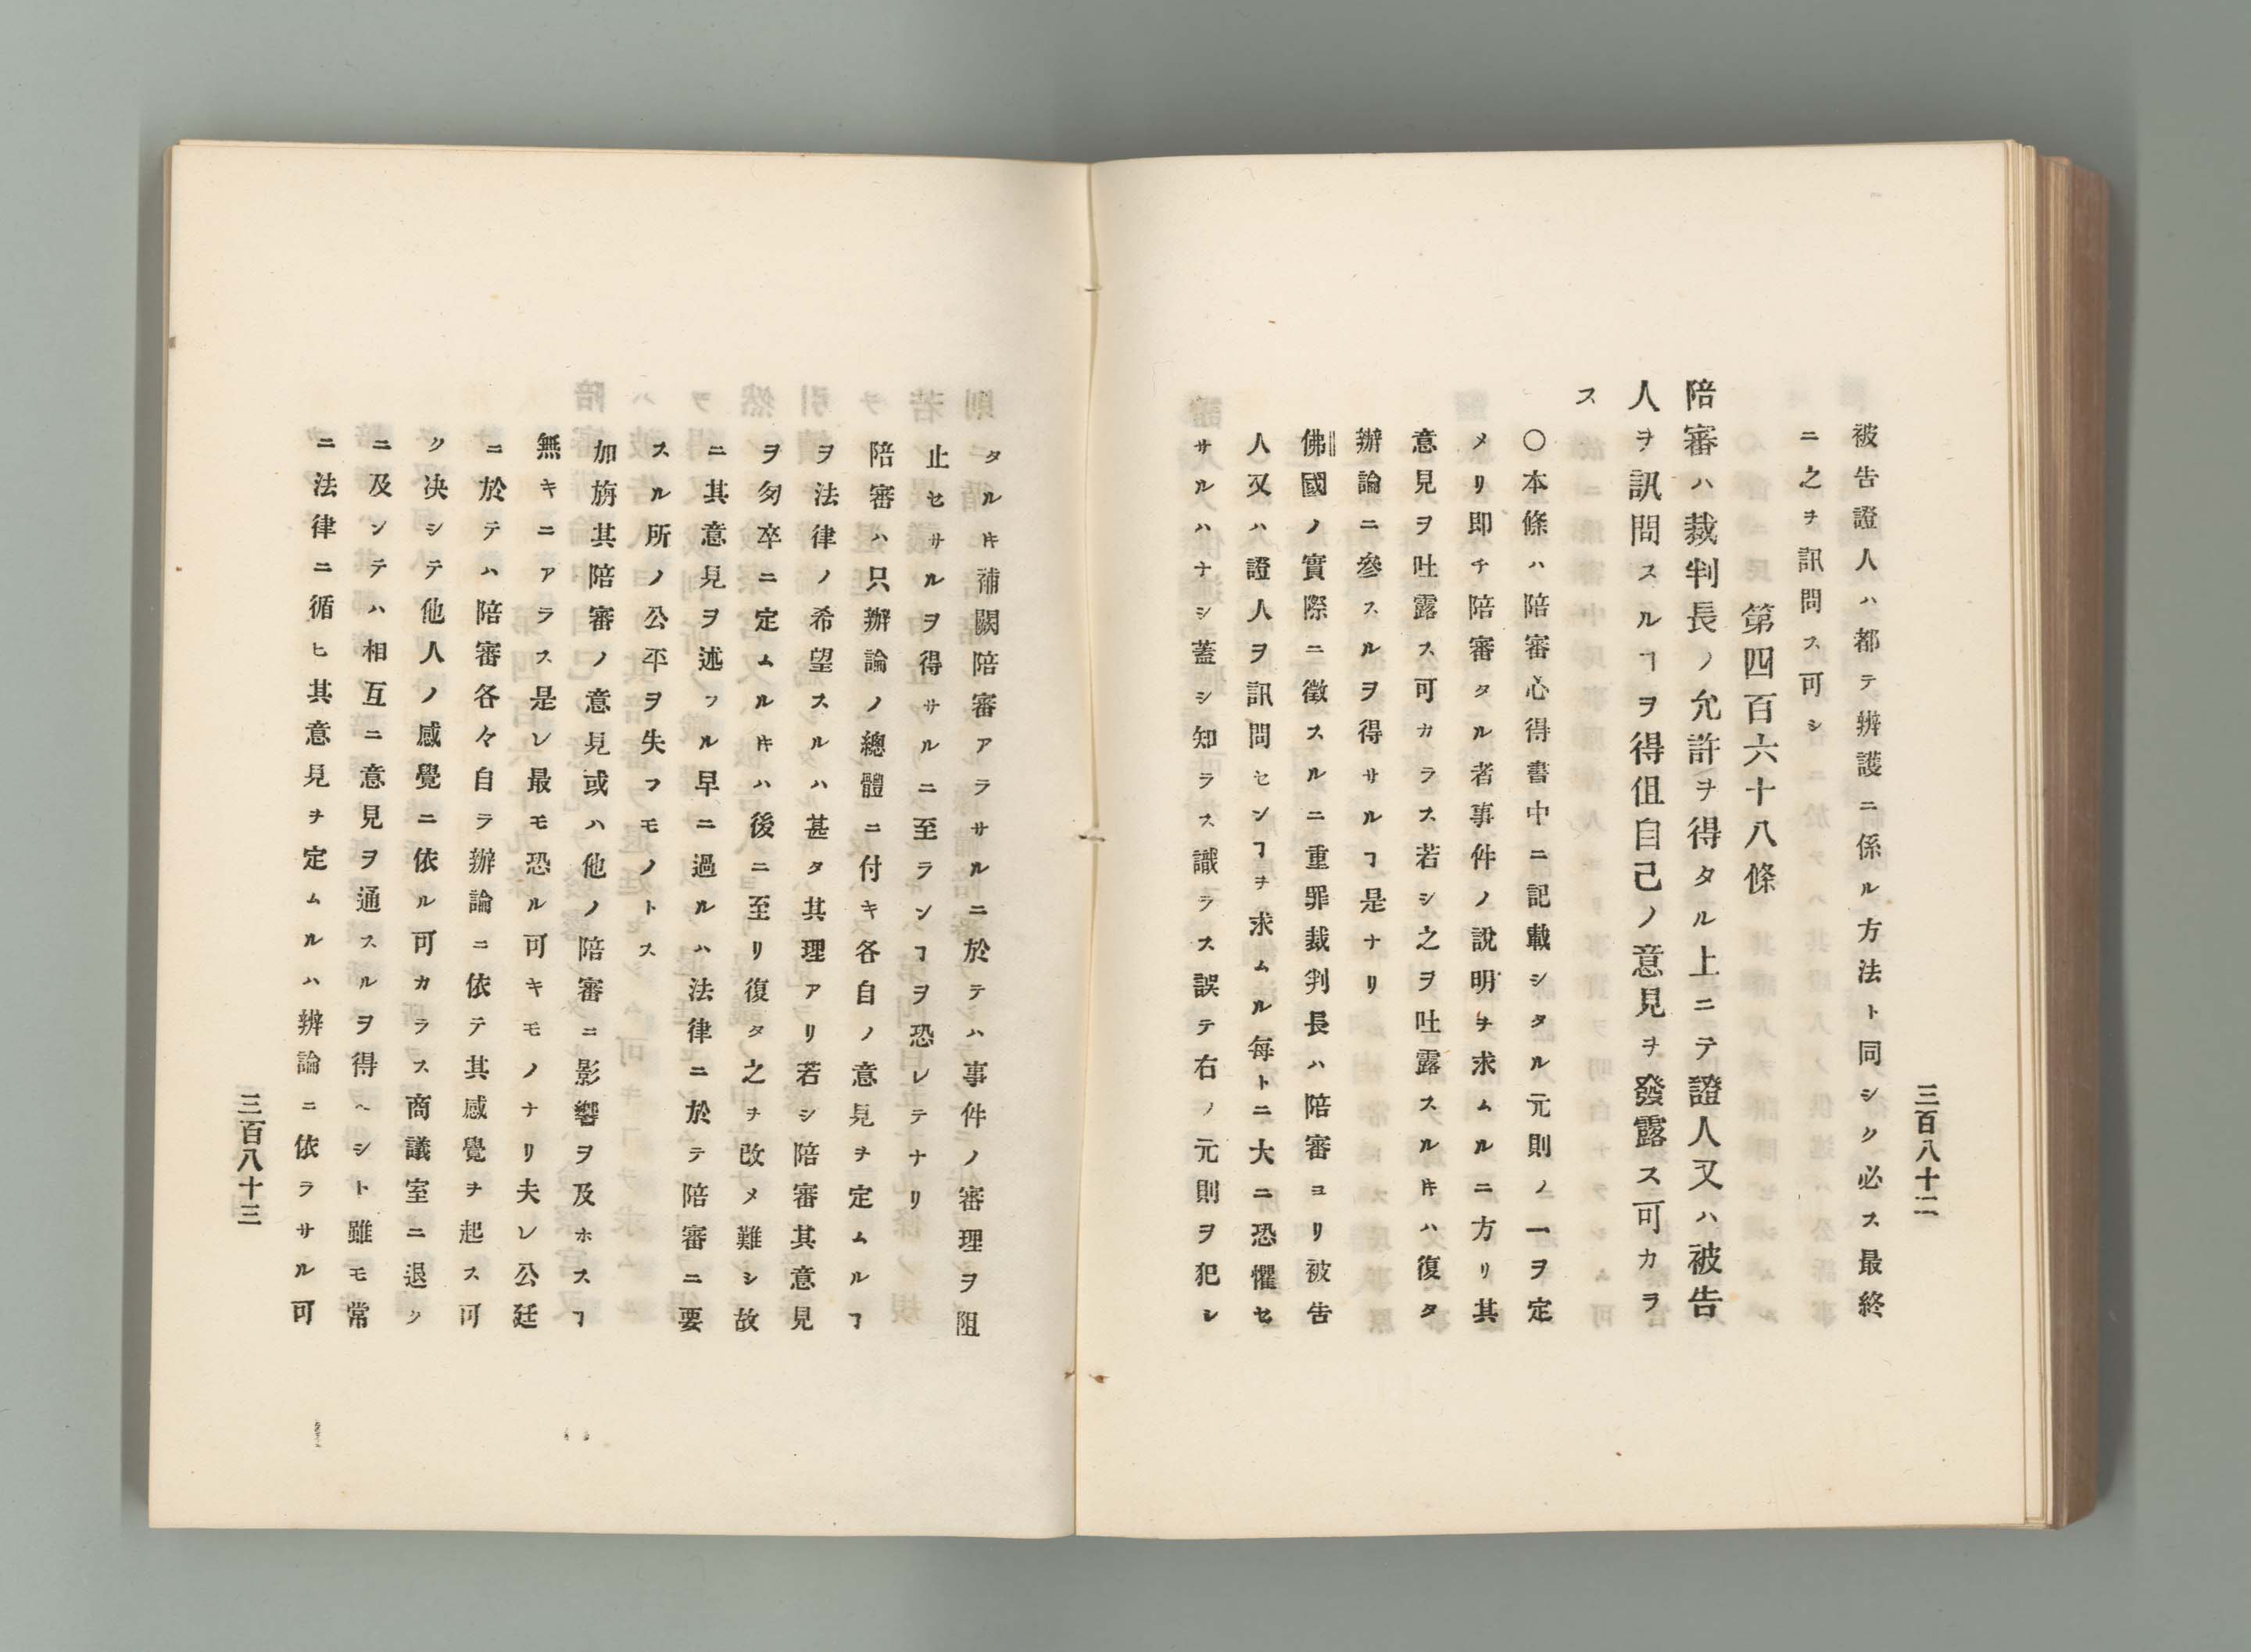 三百八十二
被告證人ハ都テ辨護ニ係ル方法ト同シク必ス最終
ニ之ヲ訊問ス可シ
第四百六十八條
陪審ハ裁判長ノ允許ヲ得タル上ニテ證人又ハ被告
人ヲ訊問スルヿヲ得伹自己ノ意見ヲ發露ス可カラ
ス
〇本條ハ陪審心得書中ニ記載シタル元則ノ一ヲ定
メリ即チ陪審タル者事件ノ說明ヲ求ムルニ方リ其
意見ヲ吐露ス可カラス若シ之ヲ吐露スルキハ復タ
辦論ニ參スルヲ得サルヿ是ナリ
佛國ノ實際ニ徵スルニ重罪裁判長ハ陪審ヨリ被告
人又ハ證人ヲ訊問センヿヲ求ムル每トニ大ニ恐懼セ
サルハナシ蓋シ知ラス識ラス誤テ右ノ元則ヲ犯シ
タルキ補闕陪審アラサルニ於テハ事件ノ審理ヲ阻
止セサルヲ得サルニ至ランヿヲ恐レテナリ
陪審ハ只辦論ノ總體ニ付キ各自ノ意見ヲ定ムルヿ
ヲ法律ノ希望スルハ甚タ其理アリ若シ陪審其意見
ヲ匆卒ニ定ムルキハ後ニ至リ復タ之ヲ改メ難シ故
ニ其意見ヲ述フル早ニ過ルハ法律ニ於テ陪審ニ要
スル所ノ公平ヲ失フモノトス
加旃其陪審ノ意見或ハ他ノ陪審ニ影響ヲ及ホスヿ
無キニアラス是レ最モ恐ル可キモノナリ夫レ公廷
ニ於テハ陪審各々自ラ辦論ニ依テ其感覺ヲ起ス可
ク决シテ他人ノ感覺ニ依ル可カラス商議室ニ退ク
ニ及ンテハ相互ニ意見ヲ通スルヲ得ヘシト雖モ常
ニ法律ニ循ヒ其意見ヲ定ムルハ辨論ニ依ラサル可
三百八十三